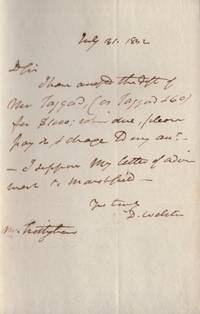 July 31. 1852
D Sir
I have accepted the dft of
Mr Taggard, (or Taggard & Co)
for $1000; when due, please
pay it, & charge to my acc't.
— I suppose my letter of advice
went to Marshfield —
Yrs truly
D. Webster